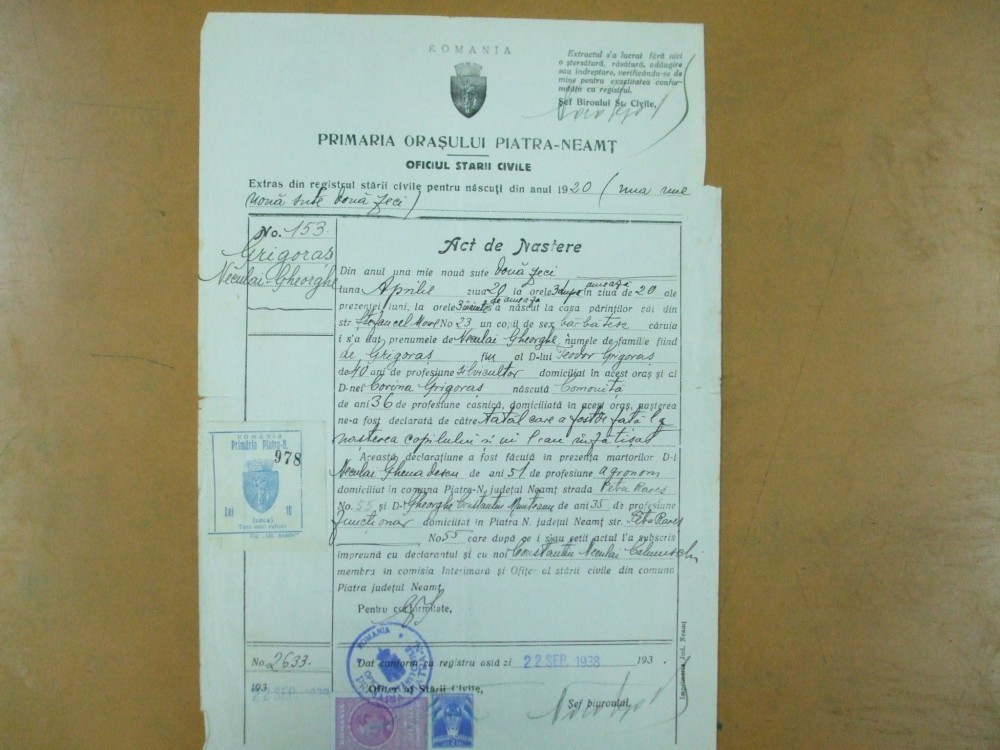 ROMANIA
Extractul s'a lucrat fără nici
o ștersătură, răsătură, adăugire
sau îndreptare, verificându-se de
mine pentru exactitatea confor-
mității cu registrul.
Șef Biroului St. Civile,
PRIMARIA ORAȘULUI PIATRA-NEAMȚ
OFICIUL STARII CIVILE
Extras din registrul stării civile pentru născuți din anul 1920 (una mie
nouă sute două zeci)
No. 153.
Grigoraș
Neculai-Gheorghe
Act de Nastere
Din anul una mie nouă sute două zeci
luna Aprilie ziua 20 la orele 3 după amează în ziua de 20 ale
prezentei luni, la orele 3 înainte de ameaza a născut la casa părinților săi din
str. Ștefan cel Mare No 23 un copil de sex bărbătesc căruia
i s'a dat prenumele de Neculai-Gheorghe numele de familie fiind
de Grigoraș fiu al D-lui Teodor Grigoraș
de 40 ani de profesiune silvicultor domiciliat în acest oraș și al
D-nei Corina Grigoraș născută
de ani 36 de profesiune casnică, domiciliată în acest oraș, nasterea
ne-a fost declarată de către tatăl care a fost de față la
nasterea copilului și ni l-au înfățișat
Această declarațiune a fost făcută în prezența martorilor D-l
Neculai de ani 51 de profesiune agronom
domiciliat în comuna Piatra-N, județul Neamț strada Petru Rares
No. 55 și D-l Gheorghe Constantin Munteanu de ani 35 de profesiune
funcționar domiciliat în Piatra N. județul Neamț str. Petru Rares
No 55 care după ce i s'au cetit actul l'a subscris
împreună cu declarantul și cu noi Constantin Neculai
membru în comisia Interimară și Ofițer al stării civile din comuna
Piatra județul Neamț,
Pentru conformitate,
ROMANIA
Primăria Piatra-N.
978
Lei 10
(zece)
No. 2633.
193
22 SEP. 1938
Dat conform cu registru astăzi 22 SEP. 1938 193 .
Ofițer al Stării Civile,
Șef biuroului,
ROMANIA
Imprimeria Jud. Neamț